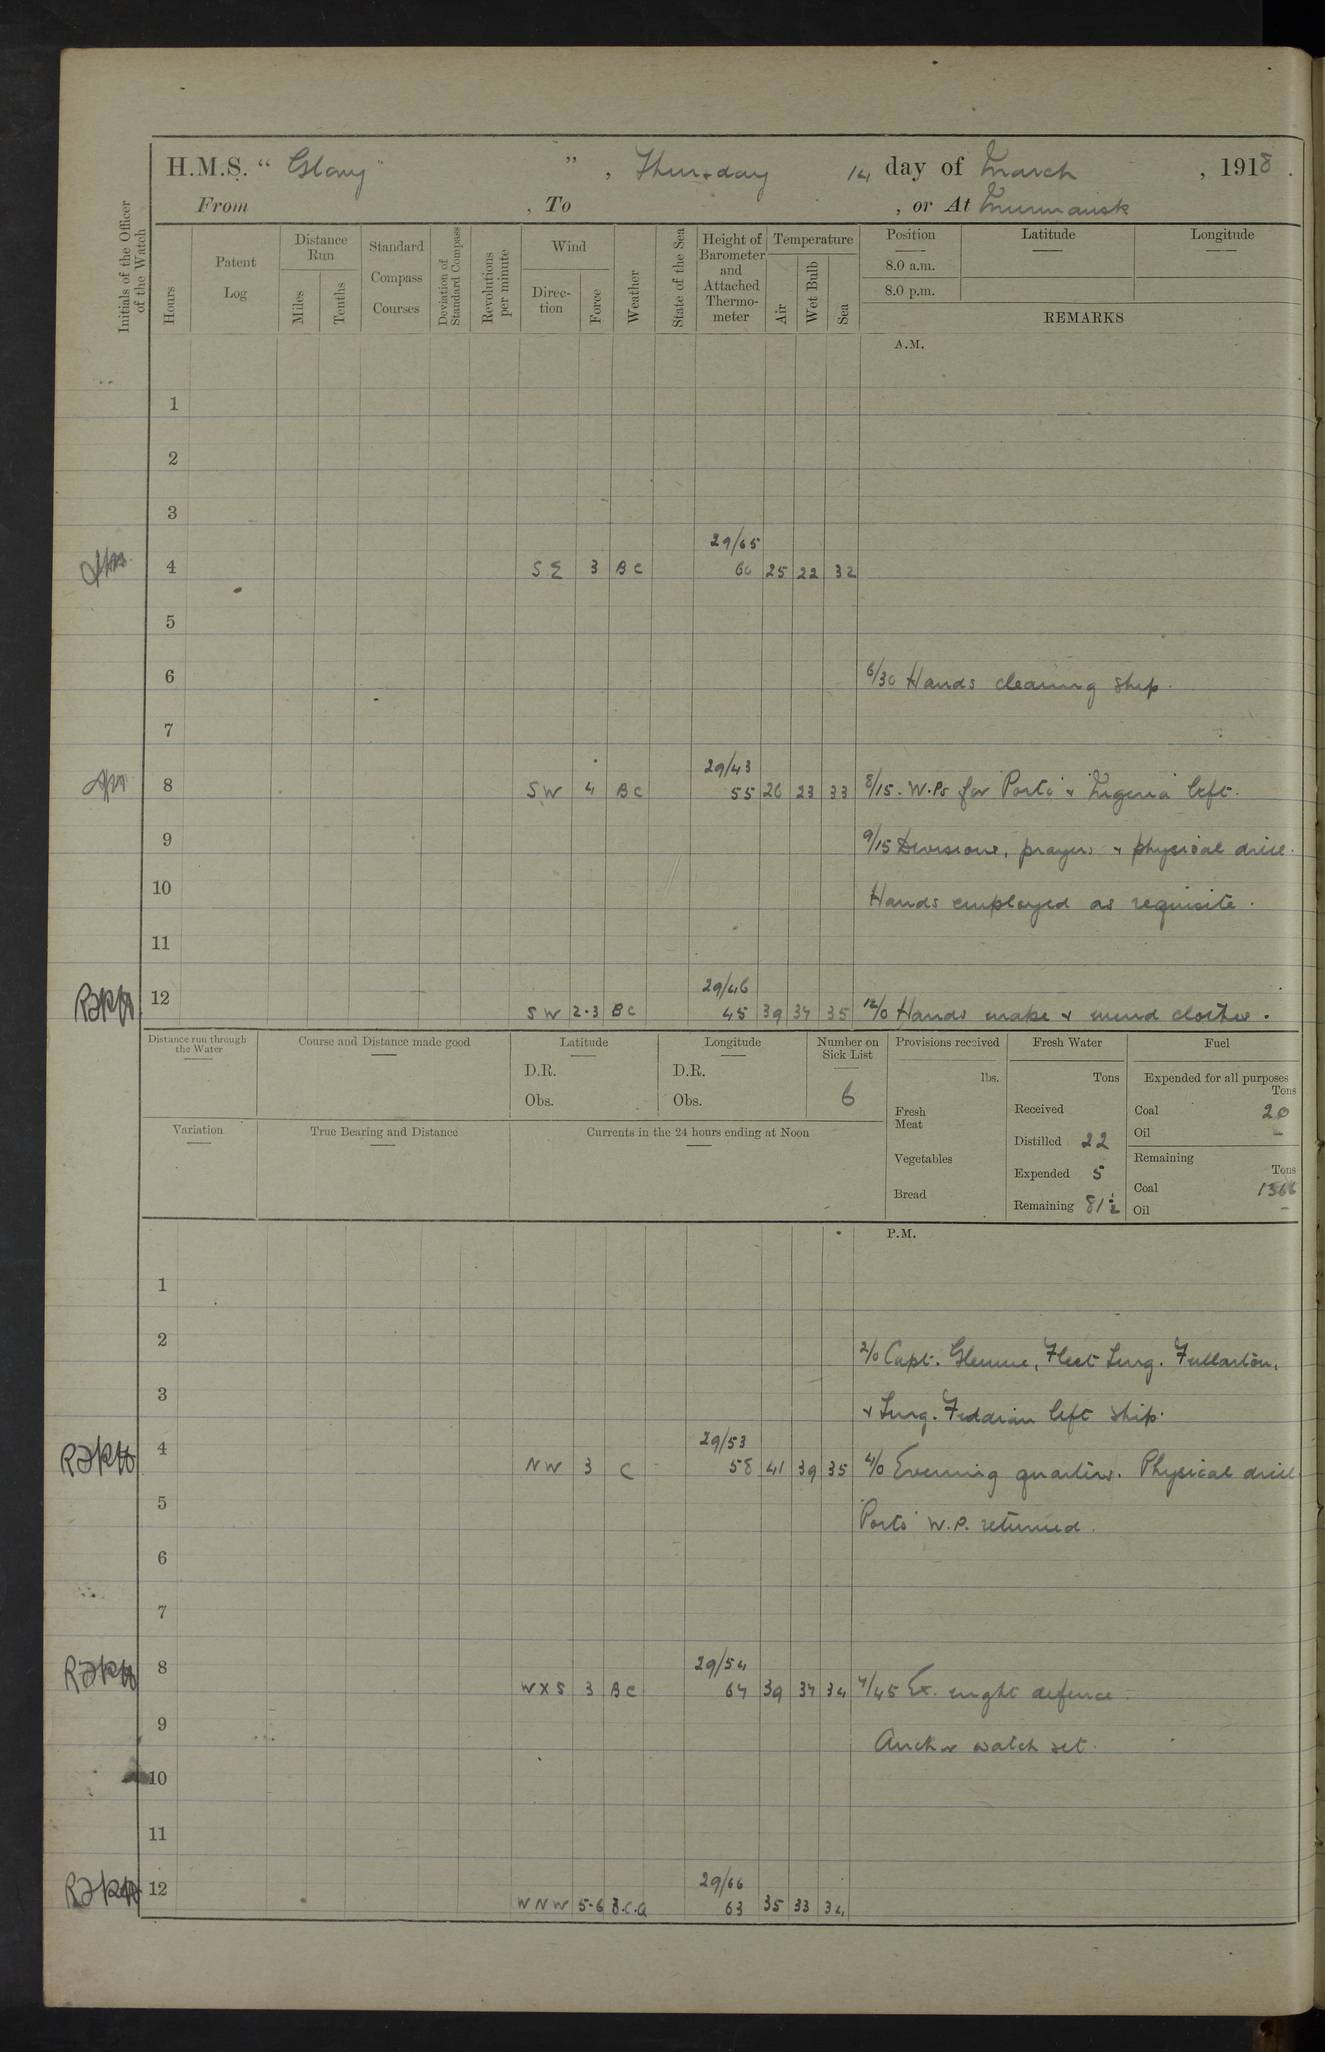 H.M.S. " Glory " , Thursday 14 day of March , 1918 .
From , To , or At Murmansk
Initials of the Officer of the Watch
Hours
Patent Log
Distance Run
Miles
Tenths
Standard Compass Courses
Deviation of Standard Compass
Revolutions per minute
Wind
Direc-tion
Force
Weather
State of the Sea
Height of Barometer and Attached Thermo-meter
Temperature
Air
Wet Bulb
Sea
Position Latitude Longitude
8.0 a.m.
8.0 p.m.
REMARKS
A.M.
1
2
3
29/65
4 SE 3 BC 60 25 22 32
5
6 6/30 Hands cleaning ship.
7
29/43
8 SW 4 BC 55 26 23 33 8/15. W.Ps for "Porto" & "Nigeria" left.
9 9/15 Divisions, prayers & physical drill.
10 Hands employed as requisite.
11
29/46
12 SW 2.3 BC 45 39 37 35 12/0 Hands make & mend clothes.
Distance run through the Water
Course and Distance made good
Latitude
D.R.
Obs.
Longitude
D.R.
Obs.
Number on Sick List
6
Provisions received
lbs.
Fresh Meat
Vegetables
Bread
Fresh Water
Tons
Received
Distilled 22
Expended 5
Remaining 81½
Fuel
Expended for all purposes
Tons
Coal 20
Oil –
Remaining
Tons
Coal 1366
Oil –
Variation
True Bearing and Distance
Currents in the 24 hours ending at Noon
P.M.
1
2 2/0 Capt. Glennie, Fleet Surg. Fullarton,
3 & Surg. left ship.
29/53
4 NW 3 C 58 41 39 35 4/0 Evening quarters. Physical drill
5 "Porto" W.P. returned.
6
7
29/54
8 WXS 3 BC 64 39 37 34 7/45 Ex. night defence.
9 Anchor watch set.
10
11
29/66
12 WNW 5-6 B.C.Q 63 35 33 34